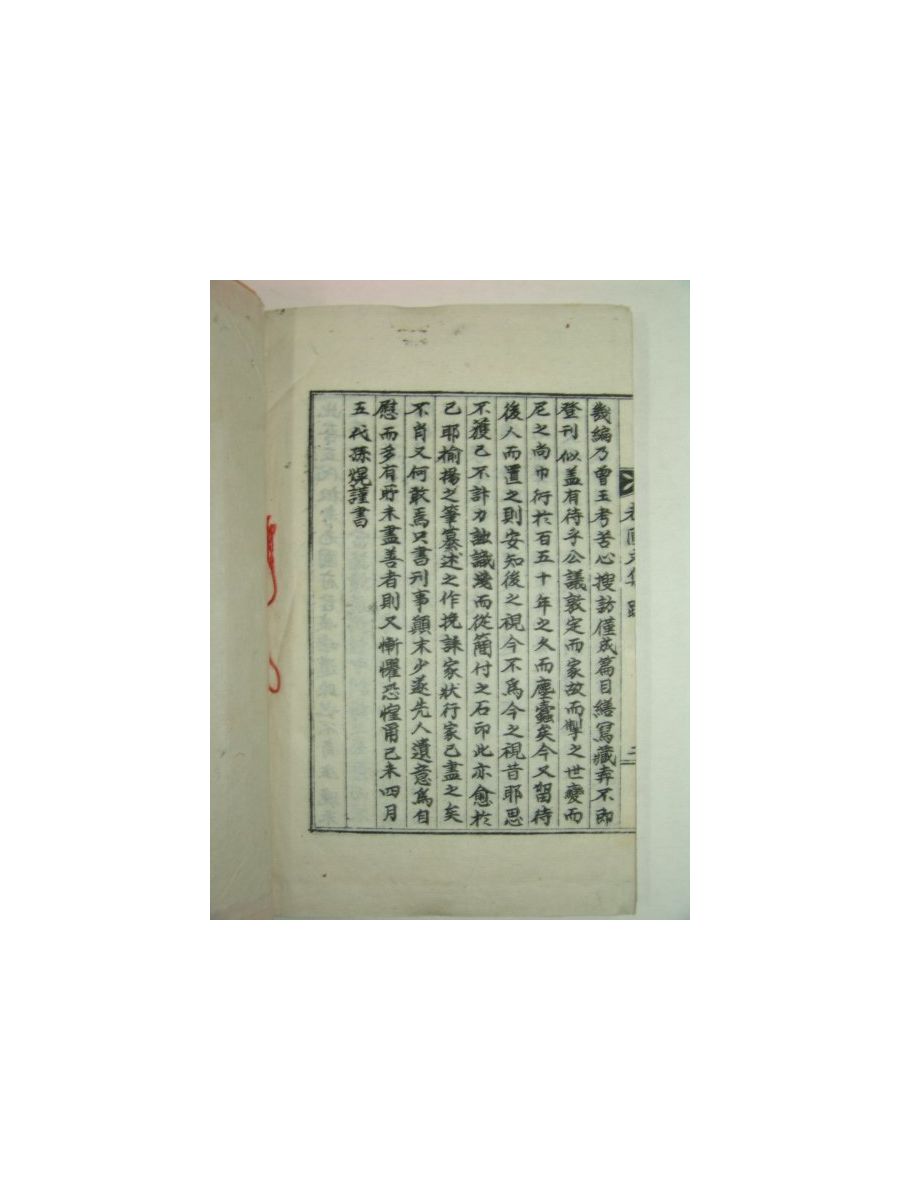 幾編乃曾王考苦心搜訪僅成篇目繕寫藏弆不卽
登刊似盖有待乎公議敦定而家故而掣之世變而
尼之尚巾衍於百五十年之久而塵蠹矣今又留待
後人而置之則安知後之視今不爲今之視昔耶思
不獲已不計力詘識淺而從簡付之石印此亦愈於
已耶揄揚之筆纂述之作挽誄家狀行家已盡之矣
不肖又何敢焉只書刊事顚末少遂先人遺意爲自
慰而多有所未盡善者則又慚懼恐惶爾己未四月
五代孫 謹書
文集 跋
二